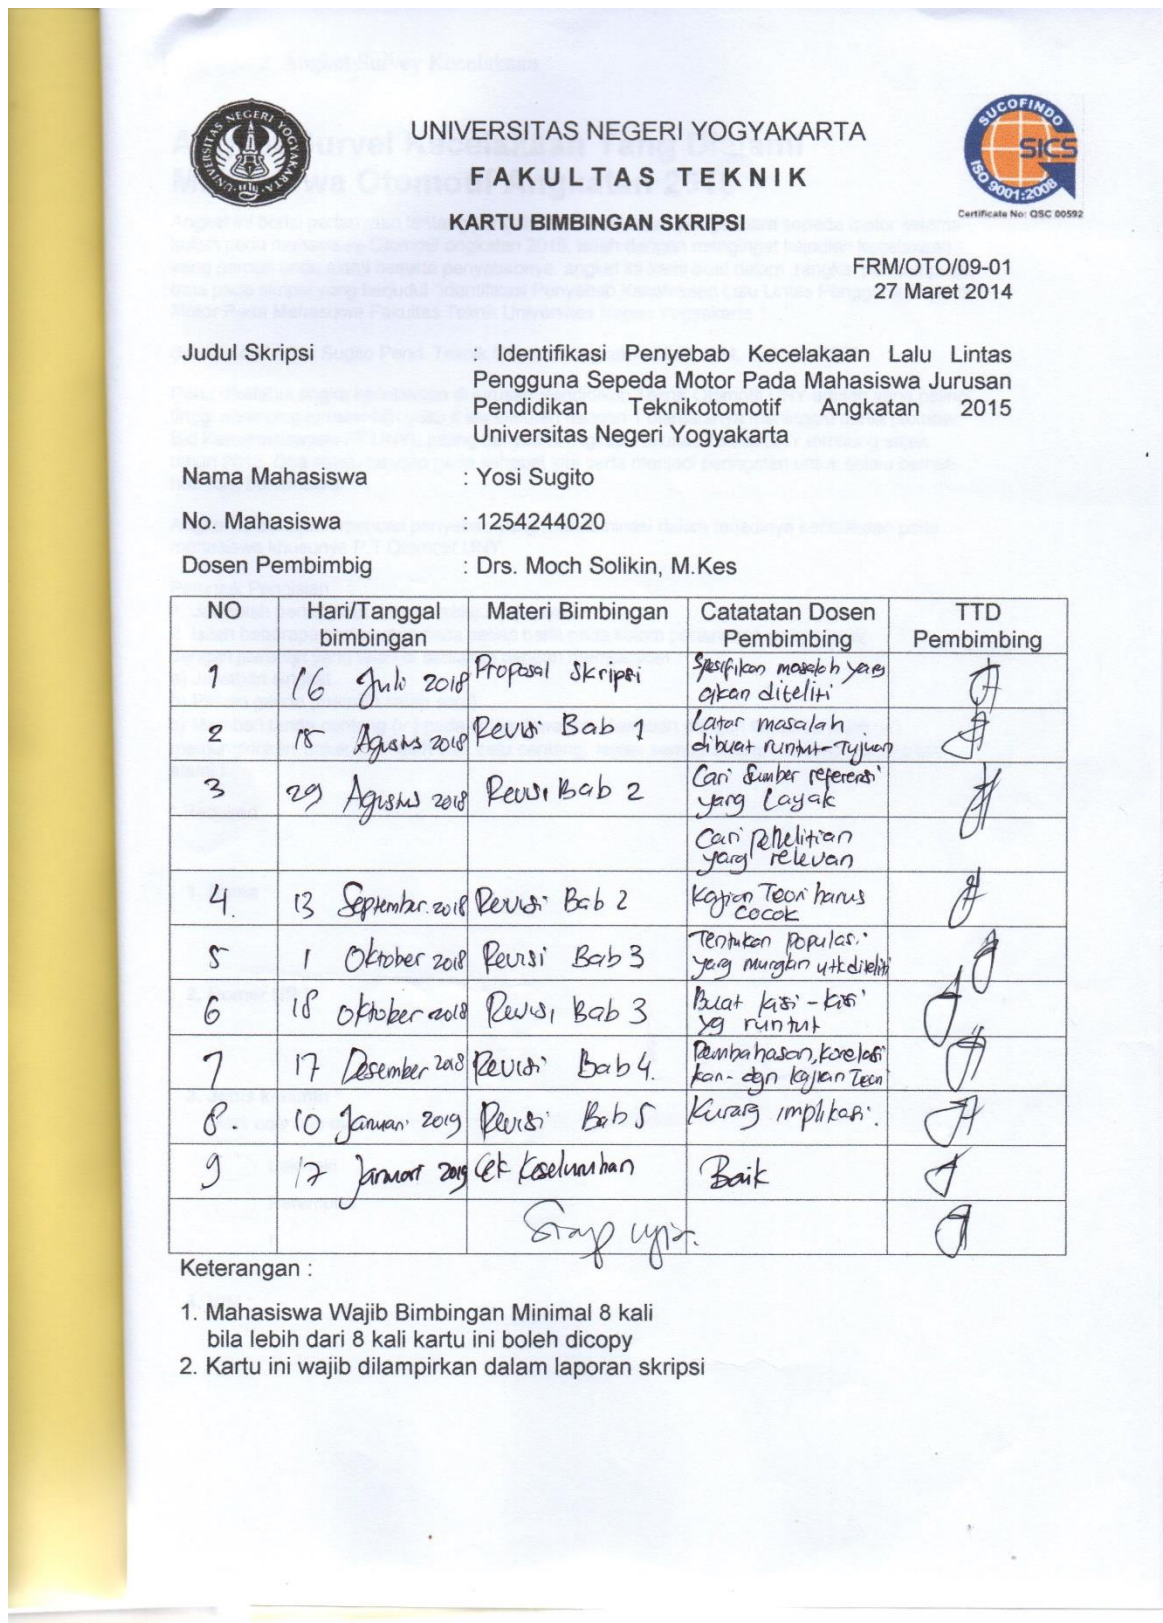 UNIVERSITAS NEGERI YOGYAKARTA
SUCOFINDO
SICS
ISO 9001:2008
Certificate No: QSC 00592
UNIVERSITAS NEGERI YOGYAKARTA
FAKULTAS TEKNIK
KARTU BIMBINGAN SKRIPSI
FRM/OTO/09-01
27 Maret 2014
Judul Skripsi : Identifikasi Penyebab Kecelakaan Lalu Lintas
Pengguna Sepeda Motor Pada Mahasiswa Jurusan
Pendidikan Teknikotomotif Angkatan 2015
Universitas Negeri Yogyakarta
Nama Mahasiswa : Yosi Sugito
No. Mahasiswa : 1254244020
Dosen Pembimbig : Drs. Moch Solikin, M.Kes
NO Hari/Tanggal Materi Bimbingan Catatatan Dosen TTD
bimbingan Pembimbing Pembimbing
1 16 Juli 2018 Proposal Skripsi Spesifikan masalah yang
akan diteliti
2 Agustus 2018 Revisi Bab 1 Latar masalah
dibuat runtut-Tujuan
3 29 Agustus 2018 Revisi Bab 2 Cari Sumber referensi
yang Layak
Cari penelitian
yang relevan
4. 13 September 2018 Revisi Bab 2 Kajian Teori harus
cocok
5 1 Oktober 2018 Revisi Bab 3 Tentukan populasi
yang mungkin utk diteliti
6 18 oktober 2018 Revisi Bab 3 Buat kisi-kisi
yg runtut
7 17 Desember 2018 Revisi Bab 4. Pembahasan, korelasi
kan- dgn kajian Teori
8. 10 Januari 2019 Revisi Bab 5 Kurang implikasi.
9 17 Januari 2019 Cek Keseluruhan Baik
Siap uji.
Keterangan :
1. Mahasiswa Wajib Bimbingan Minimal 8 kali
bila lebih dari 8 kali kartu ini boleh dicopy
2. Kartu ini wajib dilampirkan dalam laporan skripsi